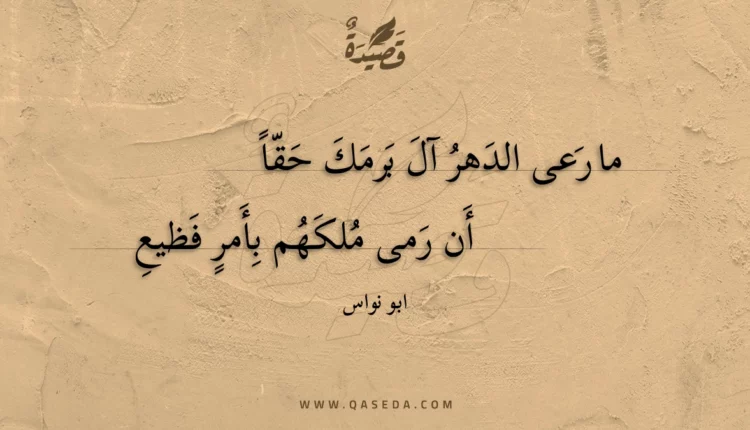 قَصِيدَةٌ
ما رَعى الدَهرُ آلَ بَرمَكَ حَقّاً
أَن رَمى مُلكَهُم بِأَمرٍ فَظيعِ
ابو نواس
WWW.QASEDA.COM